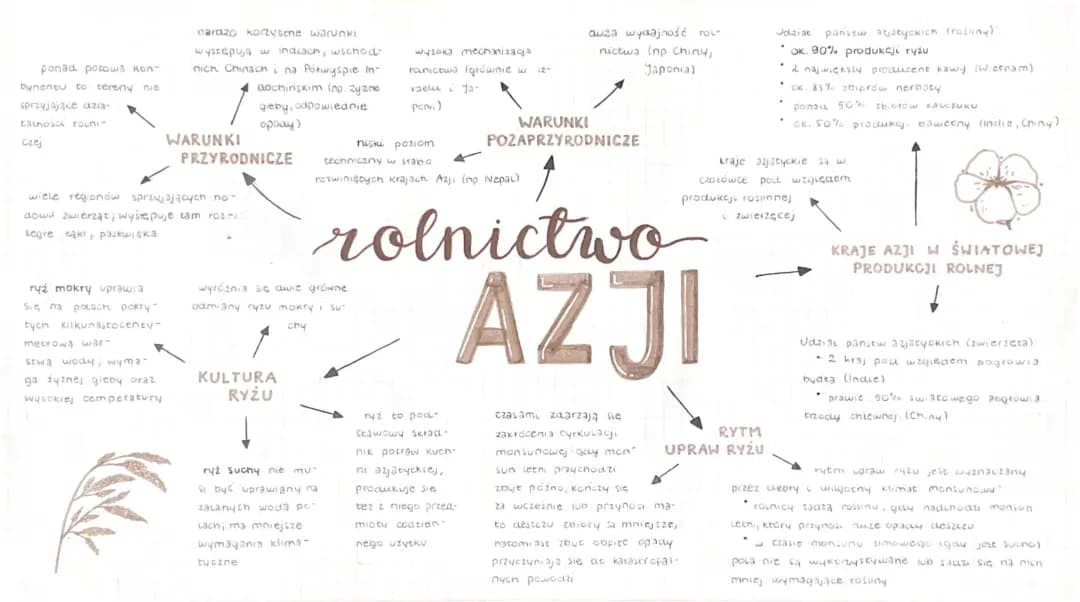 rolnictwo
AZJI
WARUNKI
PRZYRODNICZE
ponad połowa kon-
tynentu to tereny nie
sprzyjające dzia-
łalności rolni-
czej
bardzo korzystne warunki
występują w Indiach, wschod-
nich Chinach i na Półwyspie In-
dochińskim (np. żyzne
gleby, odpowiednie
opady)
wiele regionów sprzyjających ho-
dowli zwierząt; występuje tam roz-
ległe łąki, pastwiska
WARUNKI
POZAPRZYRODNICZE
wysoka mechanizacja
rolnictwa (głównie w Iz-
raelu i Ja-
ponii)
duża wydajność rol-
nictwa (np. Chiny,
Japonia)
niski poziom
techniczny w słabo
rozwiniętych krajach Azji (np Nepal)
KRAJE AZJI W ŚWIATOWEJ
PRODUKCJI ROLNEJ
Udział państw azjatyckich (rośliny)
• ok. 90% produkcji ryżu
• 2 największy producent kawy (Wietnam)
• ok. 85% zbiorów herbaty
• ponad 50% zbiorów kauczuku
• ok. 50% produkcji bawełny (Indie, Chiny)
kraje azjatyckie są w
czołówce pod względem
produkcji roślinnej
i zwierzęcej
Udział państw azjatyckich (zwierzęta)
• 2 kraj pod względem pogłowia
bydła (Indie)
• prawie 50% światowego pogłowia
trzody chlewnej (Chiny)
KULTURA
RYŻU
ryż mokry uprawia
się na polach pokry-
tych kilkunastocenty-
metrową war-
stwą wody, wyma-
ga żyznej gleby oraz
wysokiej temperatury
wyróżnia się dwie główne
odmiany ryżu mokry i su-
chy
ryż suchy nie mu-
si być uprawiany na
zalanych wodą po-
lach; ma mniejsze
wymagania klima-
tyczne
ryż to pod-
stawowy skład-
nik potraw kuch-
ni azjatyckiej,
produkuje się
też z niego przed-
mioty codzien-
nego użytku
RYTM
UPRAW RYŻU
czasami zdarzają się
zakłócenia cyrkulacji
monsunowej - gdy mon-
sun letni przychodzi
zbyt późno, kończy się
za wcześnie lub przynosi ma-
ło deszczu zbiory są mniejsze;
natomiast zbyt obfite opady
przyczyniają się do katastrofal-
nych powodzi
rytm upraw ryżu jest wyznaczany
przez ciepły i wilgotny klimat monsunowy
• rolnicy sadzą rośliny, gdy nadchodzi monsun
letni, który przynosi duże opady deszczu
• w czasie monsunu zimowego (gdy jest sucho)
pola nie są wykorzystywane lub sadzi się na nich
mniej wymagające rośliny